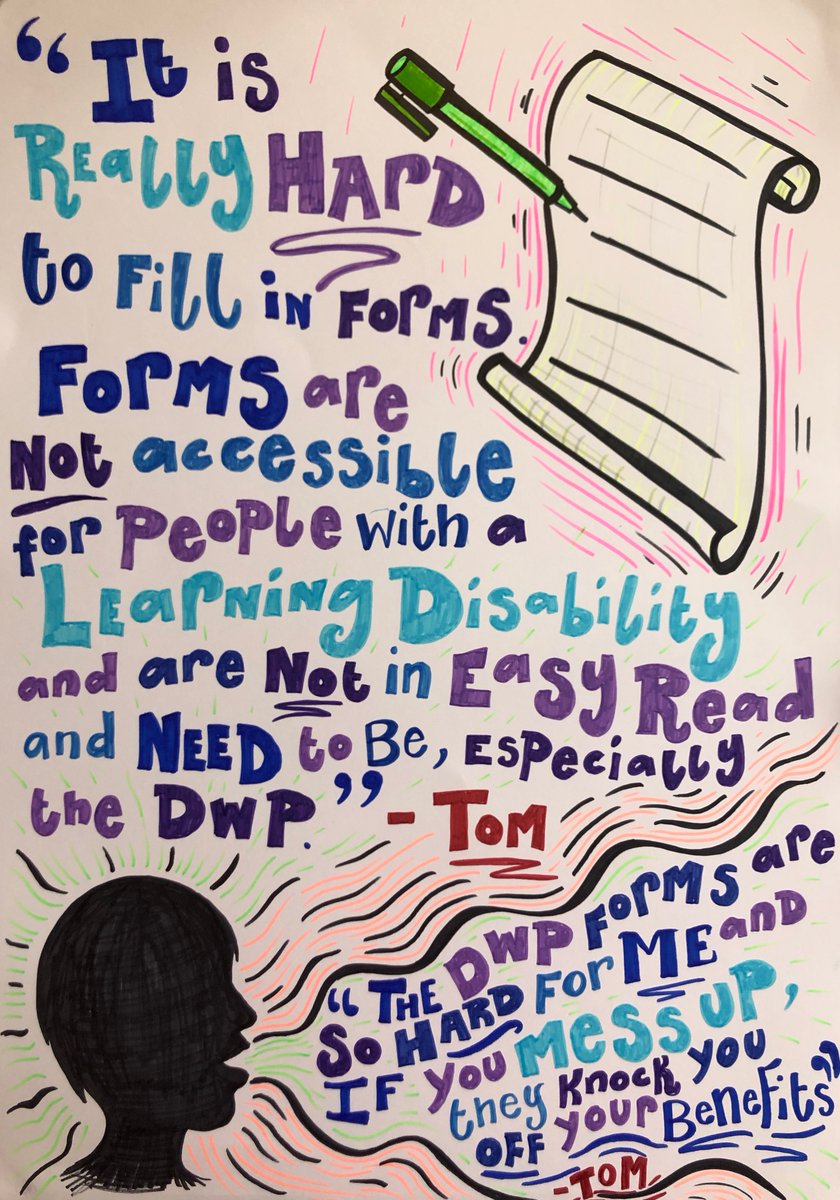 “It is
Really Hard
to Fill in Forms.
Forms are
Not accessible
for People with a
Learning Disability
and are Not in Easy Read
and NEED to Be, Especially
the DWP.” - Tom
“The DWP Forms are
So Hard For ME and
IF you Mess up,
they Knock you
OFF your Benefits”
-Tom